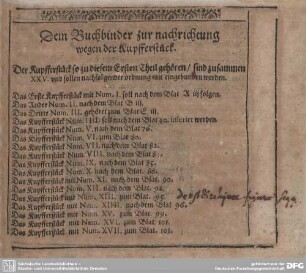 Dem Buchbinder zur nachrichtung
wegen der Kupfferstück.
Der Kupfferstück so zu diesem Ersten Theil gehören / sind zusammen
XXV. und sollen nachfolgender ordnung mit eingebunden werden.
Das Erste Kupfferstück mit Num. I. soll nach dem Blat A iij folgen.
Das Ander Num. II. nach dem Blat B iij.
Das Dritte Num. III. gehöret zum Blat E iij.
Das Kupfferstück Num. IIII. soll nach dem Blat inseriret werden.
Das Kupfferstück Num. V. nach dem Blat 76.
Das Kupfferstück Num. VI. nach dem Blat 80.
Das Kupfferstück Num. VII. nach dem Blat 82.
Das Kupfferstück Num. VIII. nach dem Blat
Das Kupfferstück Num. IX. nach dem Blat 85.
Das Kupfferstück Num. X. nach dem Blat
Das Kupfferstück Num. XI. nach dem Blat. 90.
Das Kupfferstück Num. XII. nach dem Blat. 92.
Das Kupfferstück Num. XIII. zum Blat. 95.
Das Kupfferstück mit Num. XIIII. nach dem Blat 96.
Das Kupfferstück mit Num. XV. zum Blat. 99.
Das Kupfferstück mit Num. XVI. zum Blat. 101.
Das Kupfferstück mit Num. XVII. zum Blat. 103.
Sächsische Landesbibliothek -
Staats- und Universitätsbibliothek Dresden
gefördert von der
Deutschen Forschungsgemeinschaft
DFG